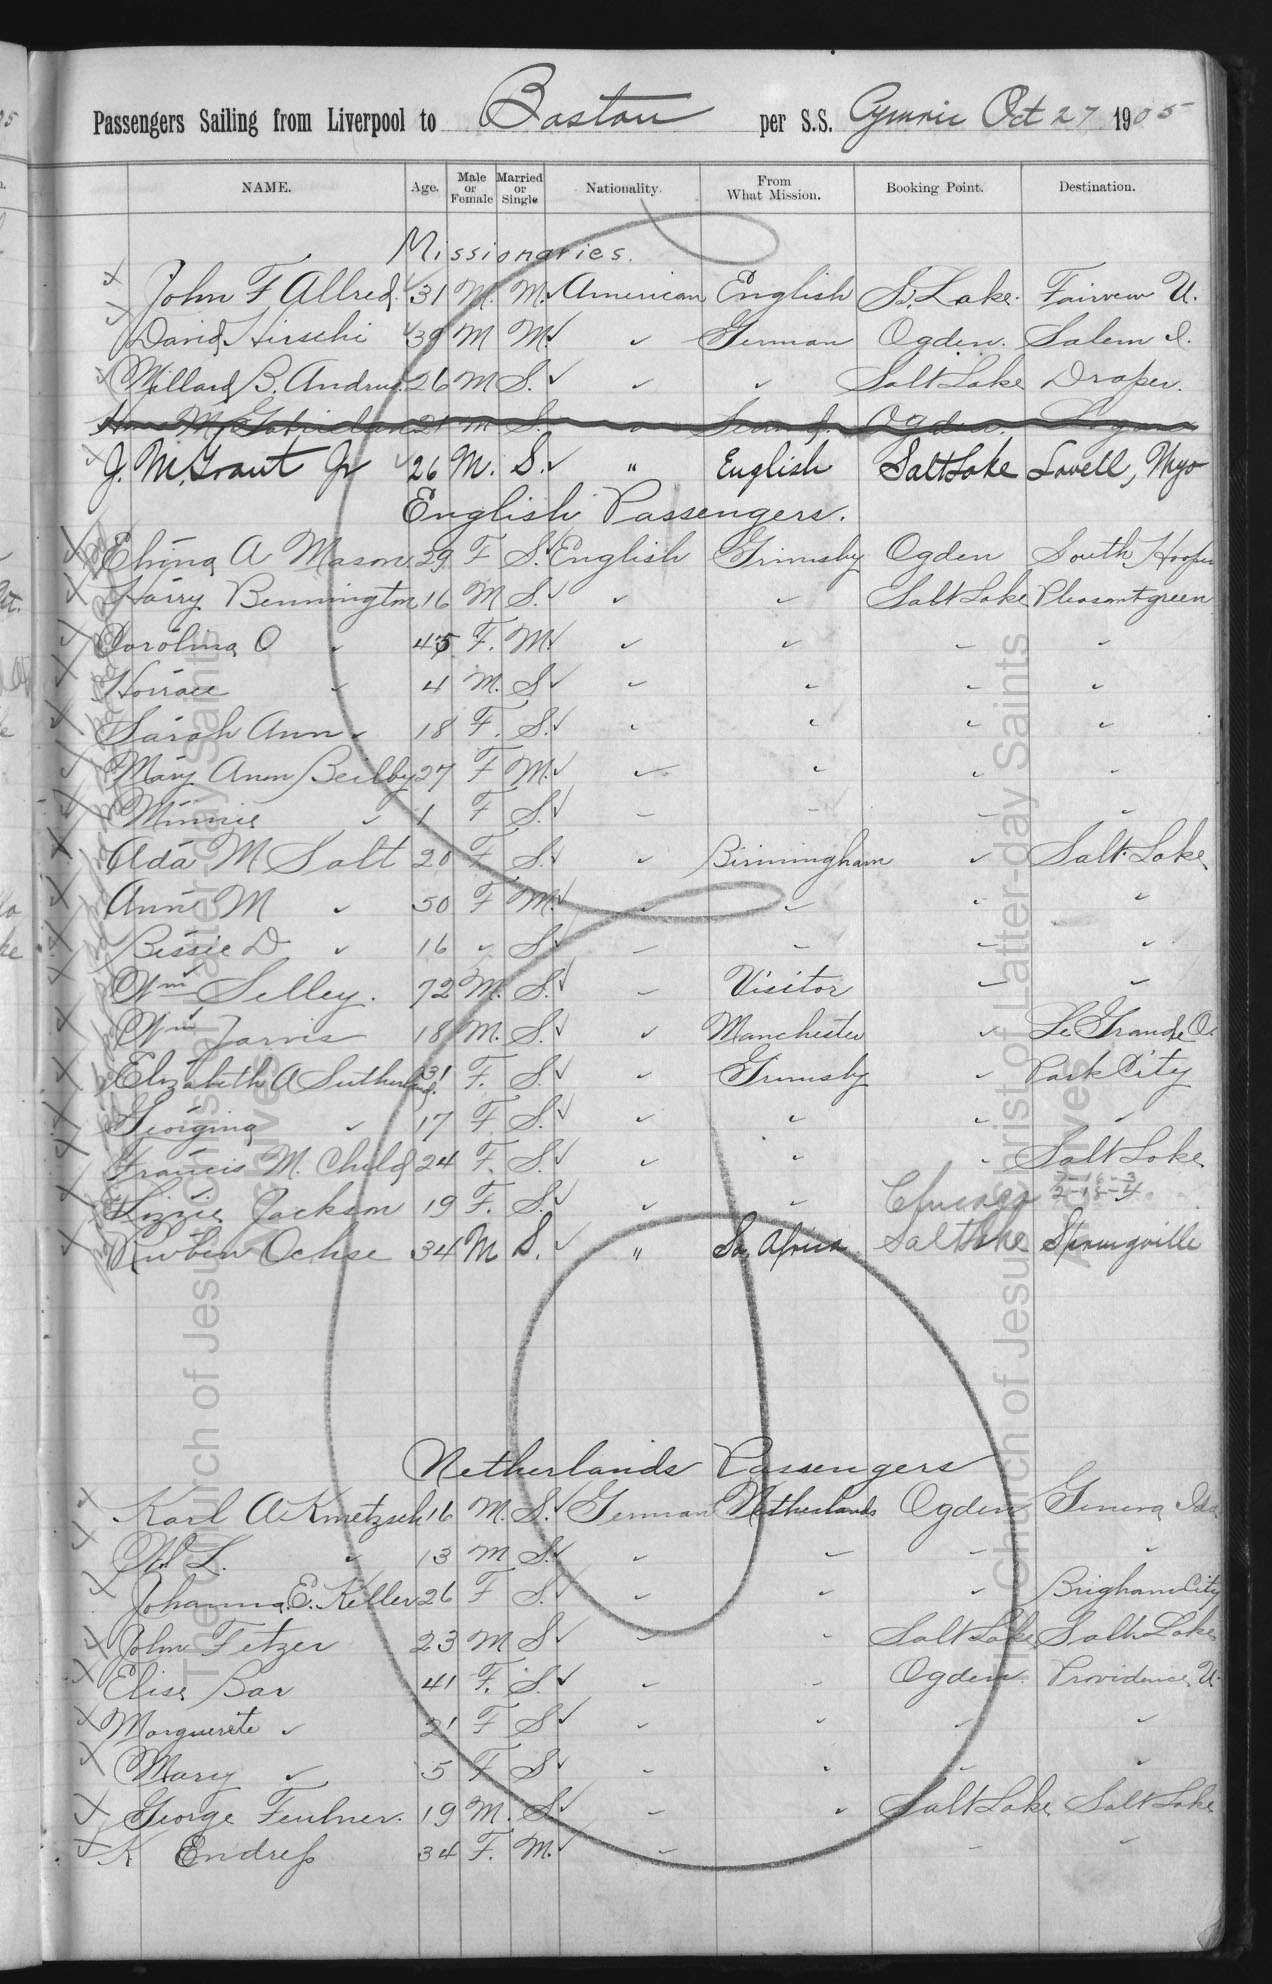 Passengers Sailing from Liverpool to Boston per S.S. Cymric Oct 27 1905
NAME. Age. Male or Female Married or Single Nationality. From What Mission. Booking Point. Destination.
Missionaries.
John F Allred 31 M. M. American English S. Lake. Fairview U.
David Hirschi 39 M M. " German Ogden. Salem I.
Willard B. Andrus 26 M S. " " Salt Lake Draper.
21 M S. " Scand. Ogden. Logan
J. M. Grant Jr 26 M. S. " English Salt Lake Lovell, Wyo
English Passengers.
A Mason 29 F S. English Grimsby Ogden South Hooper
Harry Bennington 16 M S. " " Salt Lake Pleasantgreen
Carolina O " 45 F. M. " " " "
Horrace " 4 M. S " " " "
Sarah Ann " 18 F. S. " " " "
Mary Ann Beilby 27 F M. " " " "
Minnie " 1 F S. " " " "
Ada M Salt 20 F S. " Birmingham " Salt Lake
Anne M " 50 F M. " " " "
Bessie D " 16 " S " " " "
Wm Selley. 72 M. S. " Visitor " "
Wm Jarvis 18 M. S. " Manchester " Le Grande O.
Elizabeth A Sutherland. 31 F. S. " Grimsby " Park City
Georgina " 17 F S. " " " "
Francis M. Child 24 F. S. " " " Salt Lake
Lizzie Jackson 19 F. S. " " Chicago 2-16-3 2-18-4
Ruben Ochse 34 M S. " So. Africa Salt Lake Springville
Netherlands Passengers
Karl A Kmetzsch 16 M. S. German Netherlands Ogden Geneva Ida.
W L. " 13 M S. " " " "
Johanna E. Keller 26 F S. " " " Brigham City
John Fetzer 23 M S " " Salt Lake Salt Lake
Elise Bar 41 F. S. " " Ogden. Providence U.
Marguerete " 21 F S " " " "
Mary " 5 F S " " " "
George Feulner. 19 M. S. " " Salt Lake Salt Lake
K Endress 34 F. M. " " "
The Church of Jesus Christ of Latter-day Saints
Archives
The Church of Jesus Christ of Latter-day Saints
Archives